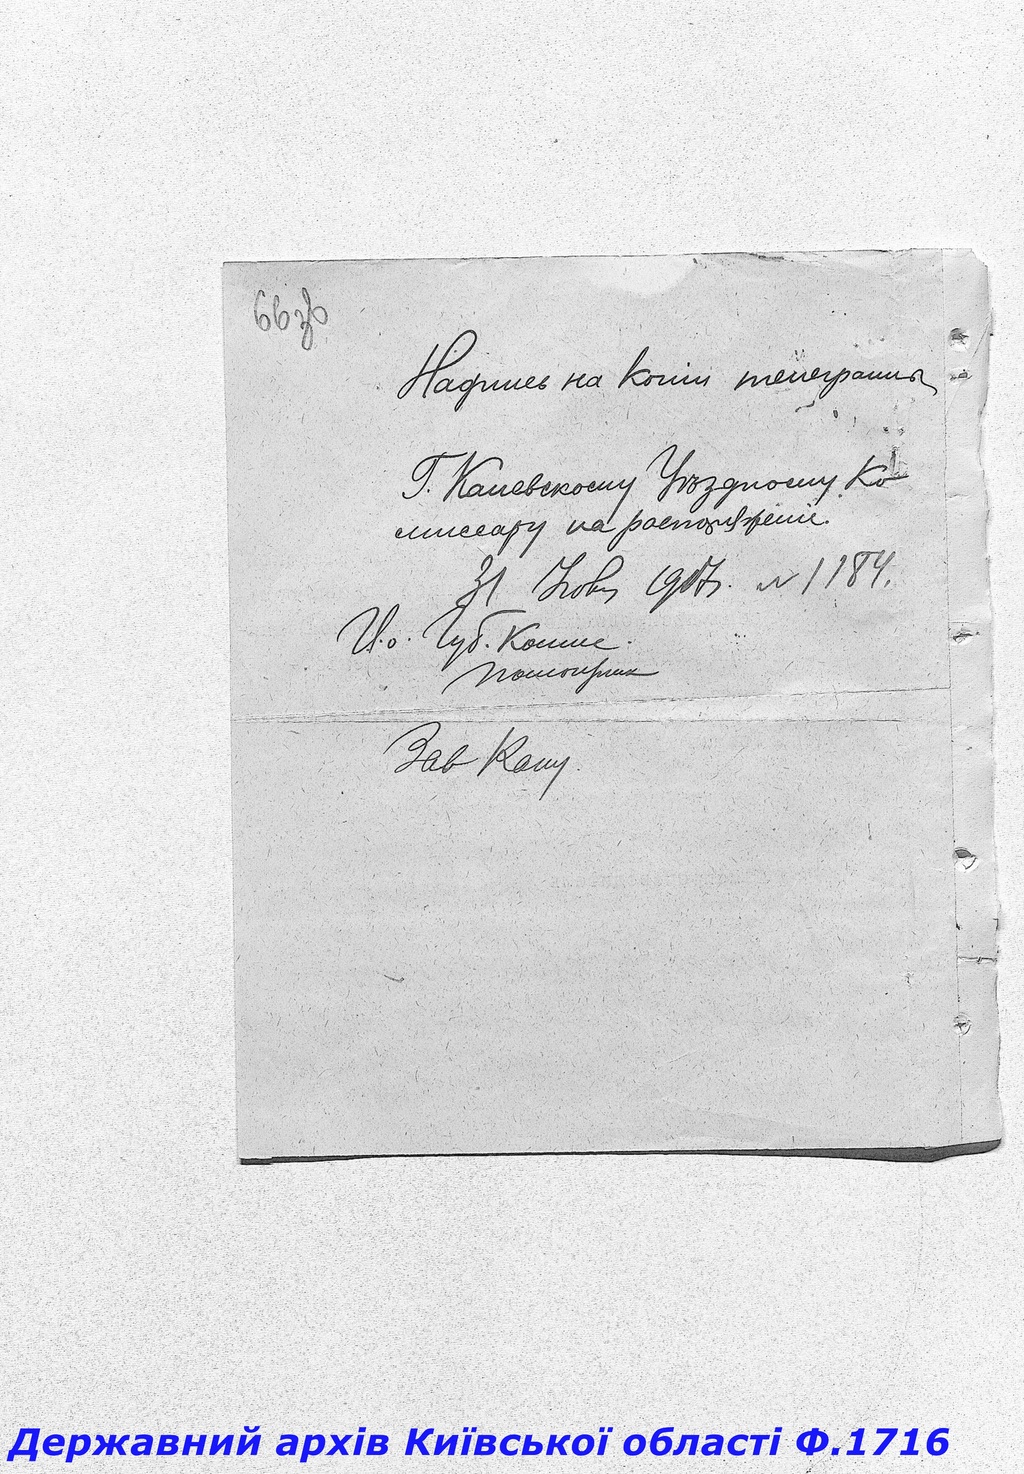 66 зв
Надпись на копіи телеграммы
Г. Каневскому Уѣздному Ко
миссару на распоряженіе.
31 1917. № 1184.
И.о. Губ. Комис.
Зав Канц.
Державний архів Київської області Ф.1716